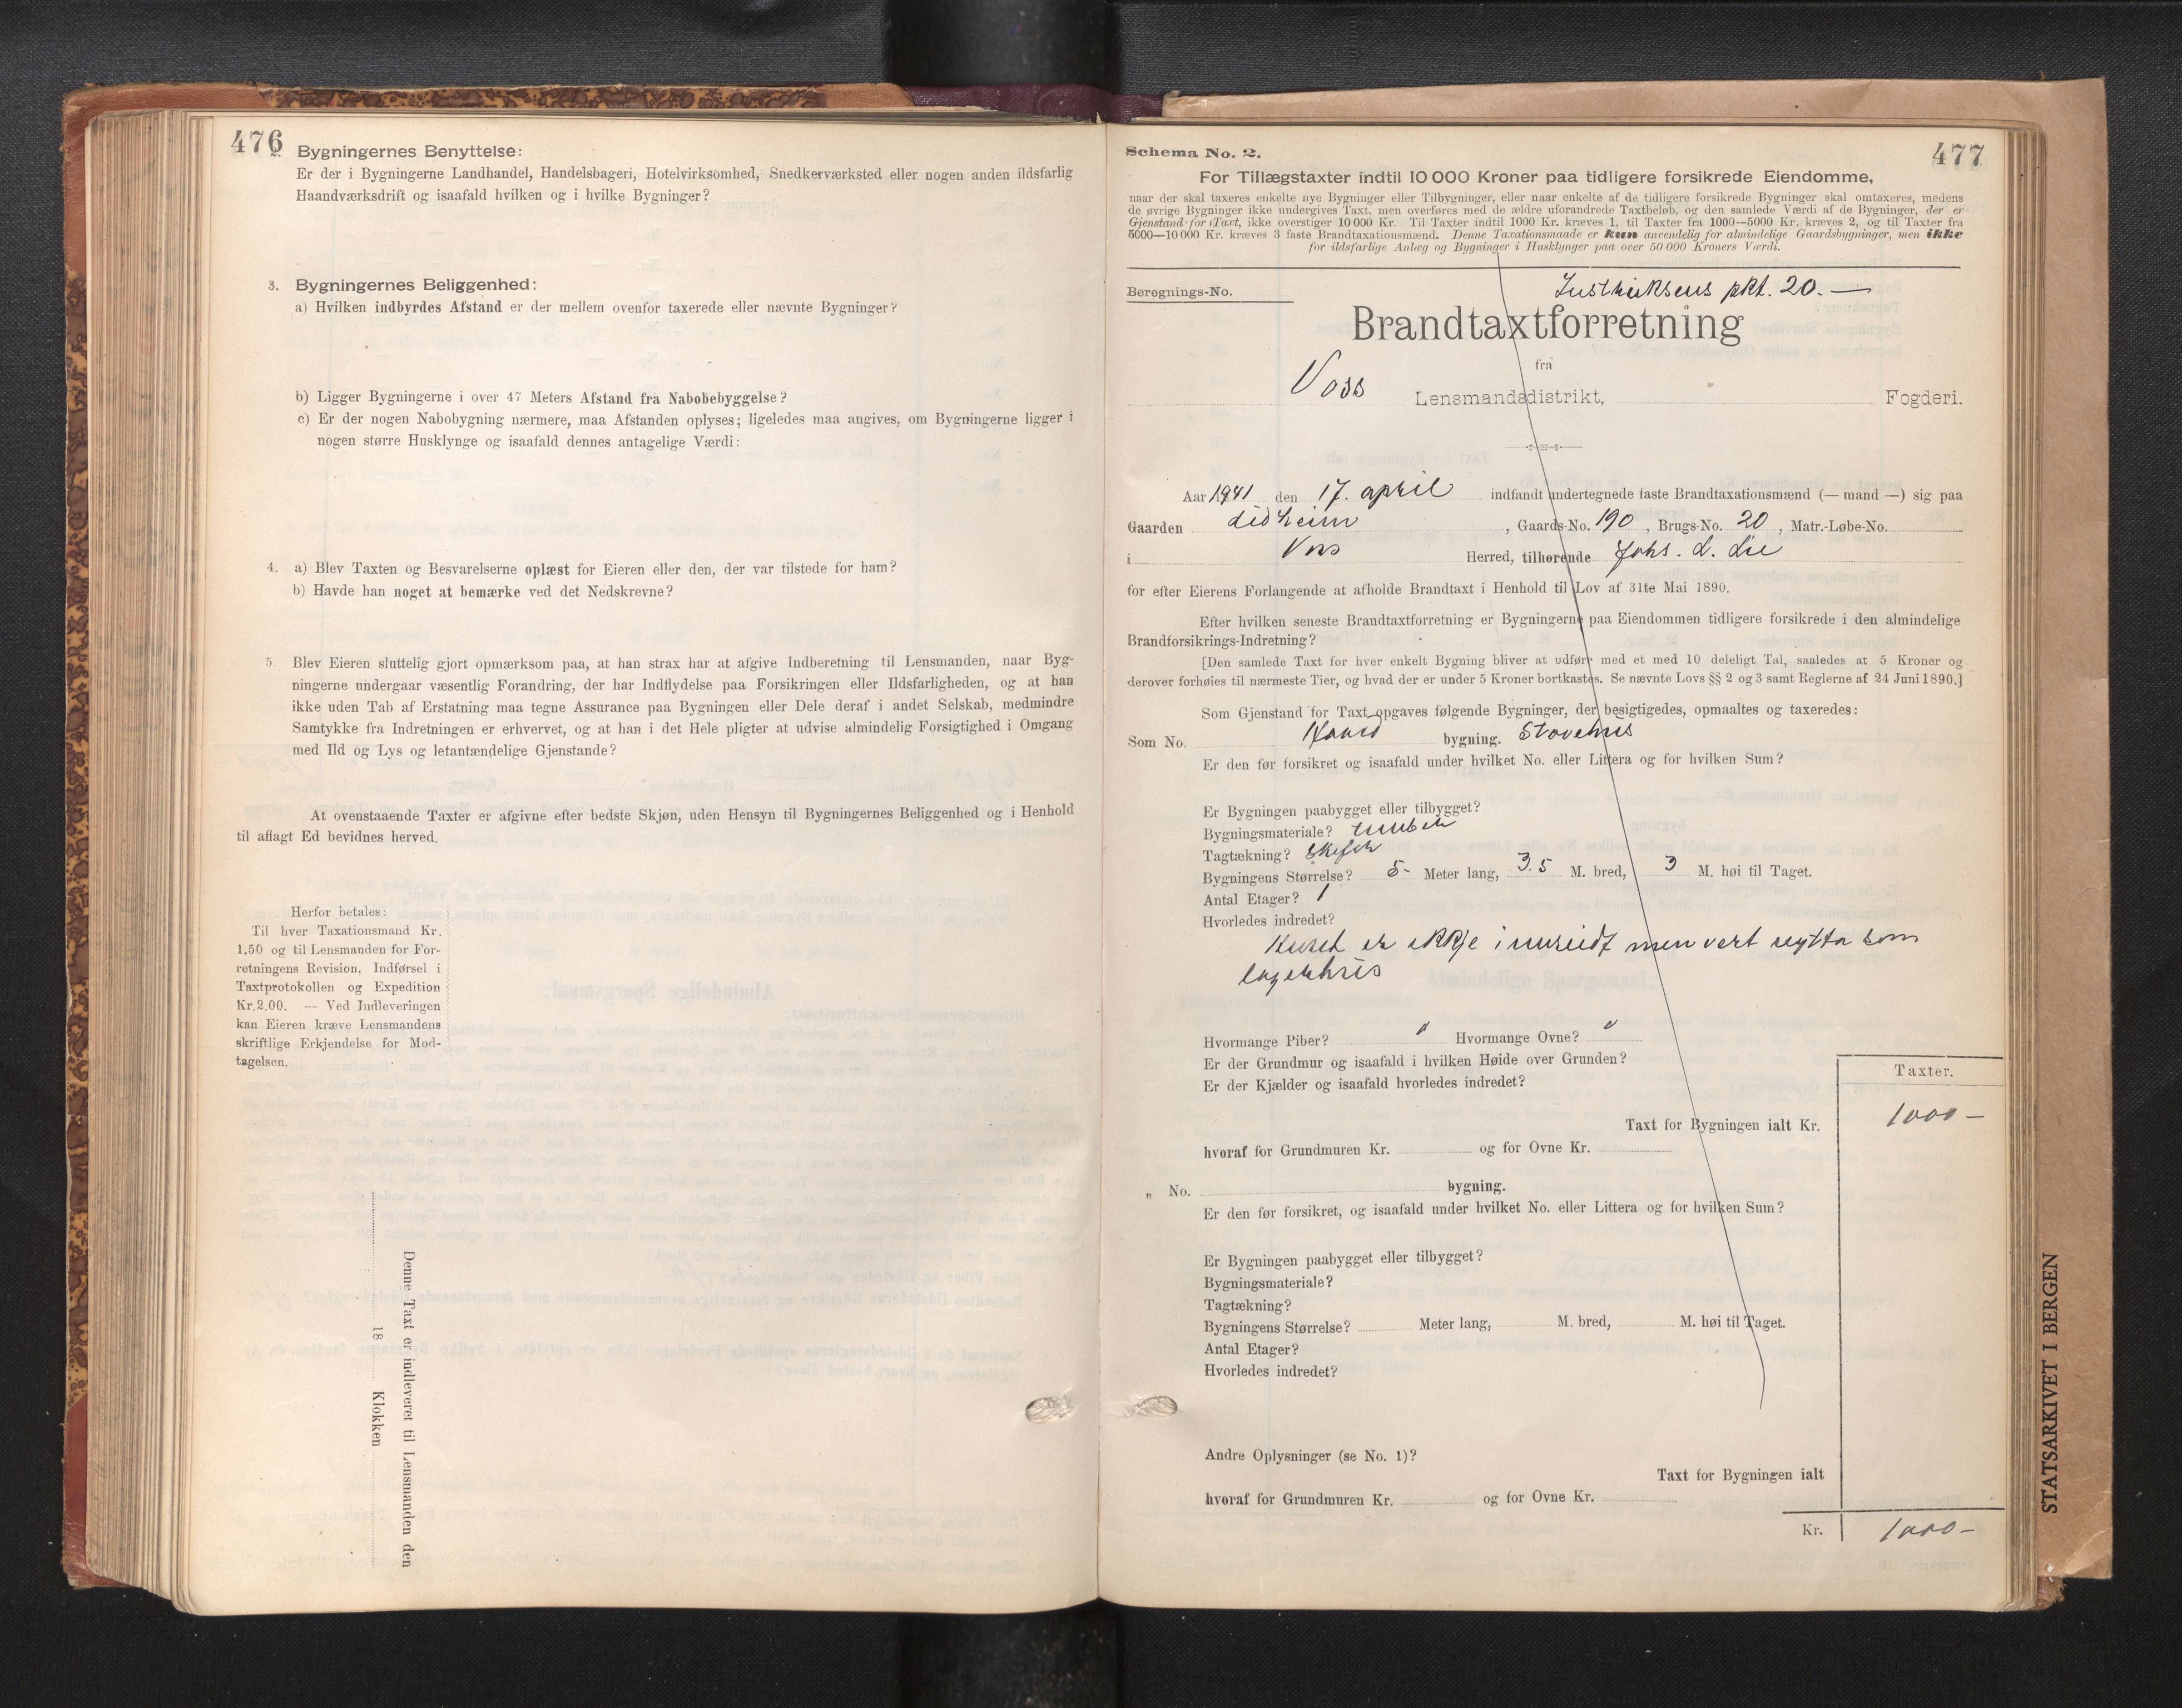 476
2. Bygningernes Benyttelse:
Er der i Bygningerne Landhandel, Handelsbageri, Hotelvirksomhed, Snedkerværksted eller nogen anden ildsfarlig
Haandværksdrift og isaafald hvilken og i hvilke Bygninger?
3. Bygningernes Beliggenhed:
a) Hvilken indbyrdes Afstand er der mellem ovenfor taxerede eller nævnte Bygninger?
b) Ligger Bygningerne i over 47 Meters Afstand fra Nabobebyggelse?
c) Er der nogen Nabobygning nærmere, maa Afstanden oplyses; ligeledes maa angives, om Bygningerne ligger i
nogen større Husklynge og isaafald dennes antagelige Værdi:
4. a) Blev Taxten og Besvarelserne oplæst for Eieren eller den, der var tilstede for ham?
b) Havde han noget at bemærke ved det Nedskrevne?
5. Blev Eieren sluttelig gjort opmærksom paa, at han strax har at afgive Indberetning til Lensmanden, naar Byg-
ningerne undergaar væsentlig Forandring, der har Indflydelse paa Forsikringen eller Ildsfarligheden, og at han
ikke uden Tab af Erstatning maa tegne Assurance paa Bygningen eller Dele deraf i andet Selskab, medmindre
Samtykke fra Indretningen er erhvervet, og at han i det Hele pligter at udvise almindelig Forsigtighed i Omgang
med Ild og Lys og letantændelige Gjenstande?
At ovenstaaende Taxter er afgivne efter bedste Skjøn, uden Hensyn til Bygningernes Beliggenhed og i Henhold
til aflagt Ed bevidnes herved.
Herfor betales:
Til hver Taxationsmand Kr.
1.50 og til Lensmanden for For-
retningens Revision, Indførsel i
Taxtprotokollen og Expedition
Kr. 2.00. — Ved Indleveringen
kan Eieren kræve Lensmandens
skriftlige Erkjendelse for Mod-
tagelsen.
Denne Taxt er indleveret til Lensmanden den
18 Klokken
477
Schema No. 2.
For Tillægstaxter indtil 10 000 Kroner paa tidligere forsikrede Eiendomme,
naar der skal taxeres enkelte nye Bygninger eller Tilbygninger, eller naar enkelte af de tidligere forsikrede Bygninger skal omtaxeres, medens
de øvrige Bygninger ikke undergives Taxt, men overføres med de ældre uforandrede Taxtbeløb, og den samlede Værdi af de Bygninger, der er
Gjenstand for Taxt, ikke overstiger 10 000 Kr. Til Taxter indtil 1000 Kr. kræves 1, til Taxter fra 1000—5000 Kr. kræves 2, og til Taxter fra
5000—10 000 Kr. kræves 3 faste Brandtaxationsmænd. Denne Taxationsmaade er kun anvendelig for almindelige Gaardsbygninger, men ikke
for ildsfarlige Anlæg og Bygninger i Husklynger paa over 50 000 Kroners Værdi.
Beregnings-No.
pkt. 20. —
Brandtaxtforretning
fra
Voss Lensmandsdistrikt, Fogderi.
Aar 1941 den 17. april indfandt undertegnede faste Brandtaxationsmænd (— mand —) sig paa
Gaarden Lidheim, Gaards-No. 190, Brugs-No. 20, Matr.-Løbe-No.
i Voss Herred, tilhørende Johs. L. Lie
for efter Eierens Forlangende at afholde Brandtaxt i Henhold til Lov af 31te Mai 1890.
Efter hvilken seneste Brandtaxtforretning er Bygningerne paa Eiendommen tidligere forsikrede i den almindelige
Brandforsikrings-Indretning?
[Den samlede Taxt for hver enkelt Bygning bliver at udføre med et med 10 deleligt Tal, saaledes at 5 Kroner og
derover forhøies til nærmeste Tier, og hvad der er under 5 Kroner bortkastes. Se nævnte Lovs §§ 2 og 3 samt Reglerne af 24 Juni 1890.]
Som Gjenstand for Taxt opgaves følgende Bygninger, der besigtigedes, opmaaltes og taxeredes:
Som No. bygning. Stovehus
Er den før forsikret og isaafald under hvilket No. eller Littera og for hvilken Sum?
Er Bygningen paabygget eller tilbygget?
Bygningsmateriale? tømber
Tagtækning? skifer
Bygningens Størrelse? 5- Meter lang, 3.5 M. bred, 3 M. høi til Taget.
Antal Etager? 1
Hvorledes indreet?
Huset er ikkje innreidt men vert nytta som
lagerhus
Hvormange Piber? Hvormange Ovne?
Er der Grundmur og isaafald i hvilken Høide over Grunden?
Er der Kjælder og isaafald hvorledes indredet?
Taxter.
Taxt for Bygningen ialt Kr. 1000 —
hvoraf for Grundmuren Kr. og for Ovne Kr.
„ No. bygning.
Er den før forsikret, og isaafald under hvilket No. eller Littera og for hvilken Sum?
Er Bygningen paabygget eller tilbygget?
Bygningsmateriale?
Tagtækning?
Bygningens Størrelse? Meter lang, M. bred, M. høi til Taget.
Antal Etager?
Hvorledes indredet?
Andre Oplysninger (se No. 1)?
Taxt for Bygningen ialt
hvoraf for Grundmuren Kr. og for Ovne Kr.
Kr. 1000 —
STATSARKIVET I BERGEN